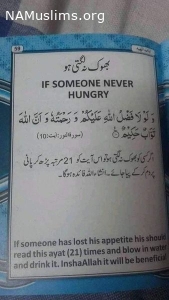 ©NAMuslims.org
59
بھوک نہ لگتی ہو
IF SOMEONE NEVER
HUNGRY
وَلَوْلَا فَضْلُ اللهِ عَلَيْكُمْ وَرَحْمَتُهٗ وَ اَنَّ اللهَ
تَوَّابٌ حَكِيْمٌ
(سورۃ النور: آیت:10)
اگر کسی کو بھوک نہ لگتی ہو تو اس آیت کو 21 مرتبہ پڑھ کر پانی
پر دم کر کے پیا جائے۔ انشاءاللہ فائدہ ہوگا۔
If someone has lost his appetite he should
read this ayat (21) times and blow in water
and drink it. InshaAllah it will be beneficial